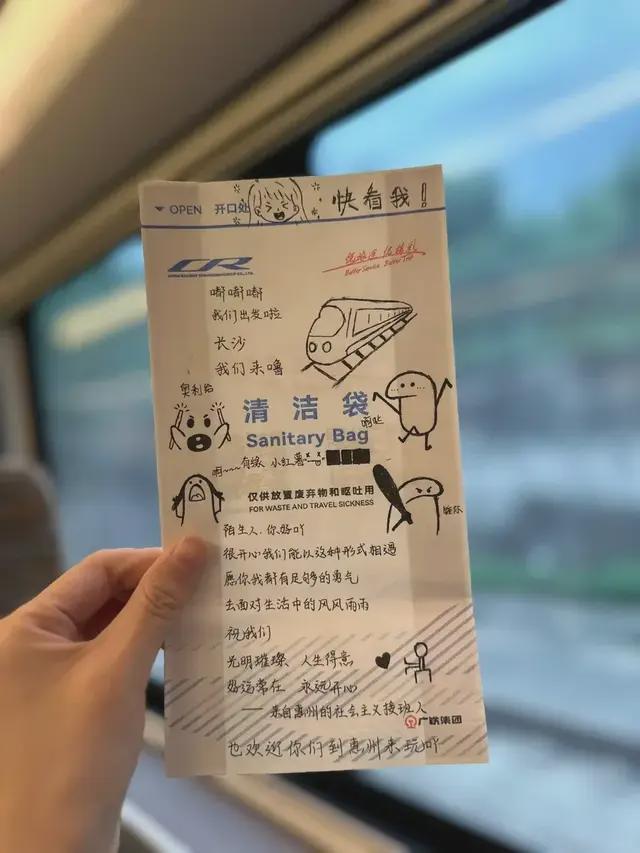 OPEN 开口处 快看我！
CR
Better Service Better Trip
嘟嘟嘟
我们出发啦
长沙
我们来噜
奥利给
清洁袋
Sanitary Bag
啊~~~有缘 小红薯
仅供放置废弃物和呕吐用
FOR WASTE AND TRAVEL SICKNESS
陌生人，你好吖
很开心我们能以这种形式相遇
愿你我都有足够的勇气
去面对生活中的风风雨雨
祝我们
光明璀璨、人生得意
好运常在 永远开心
——来自惠州的社会主义接班人
广铁集团
也欢迎你们到惠州来玩吖